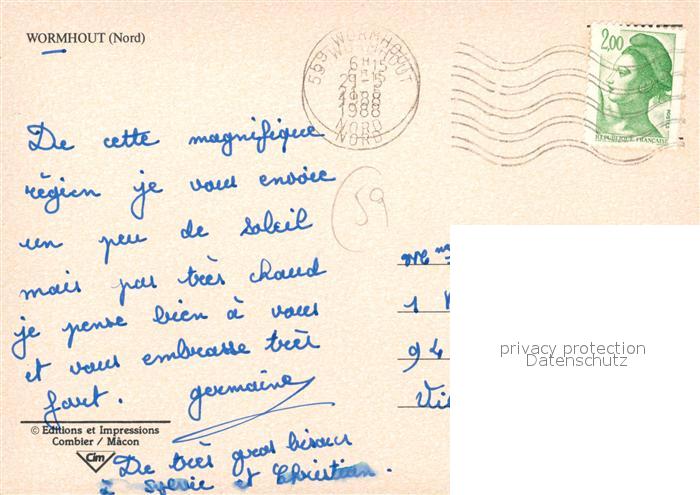 WORMHOUT (Nord)
WORMHOUT
1988
NORD
2,00
REPUBLIQUE FRANÇAISE
59
De cette magnifique
région je vous envoie
un peu de soleil
mais pas très chaud
je pense bien à vous
et vous embrasse très
fort. germaine
© Editions et Impressions
Combier / Mâcon
Cim
De très gros bisous
à Sylvie et Christian.
1
94
privacy protection
Datenschutz